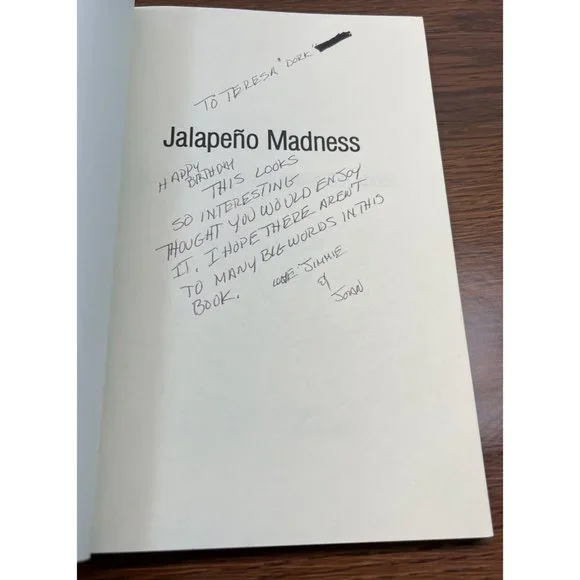 TO TERESA "DORK"
Jalapeño Madness
HAPPY
BIRTHDAY
THIS LOOKS
SO INTERESTING
THOUGHT YOU WOULD ENJOY
IT. I HOPE THERE AREN'T
TO MANY BIG WORDS IN THIS
BOOK. LOVE JIMMIE
&
JOAN